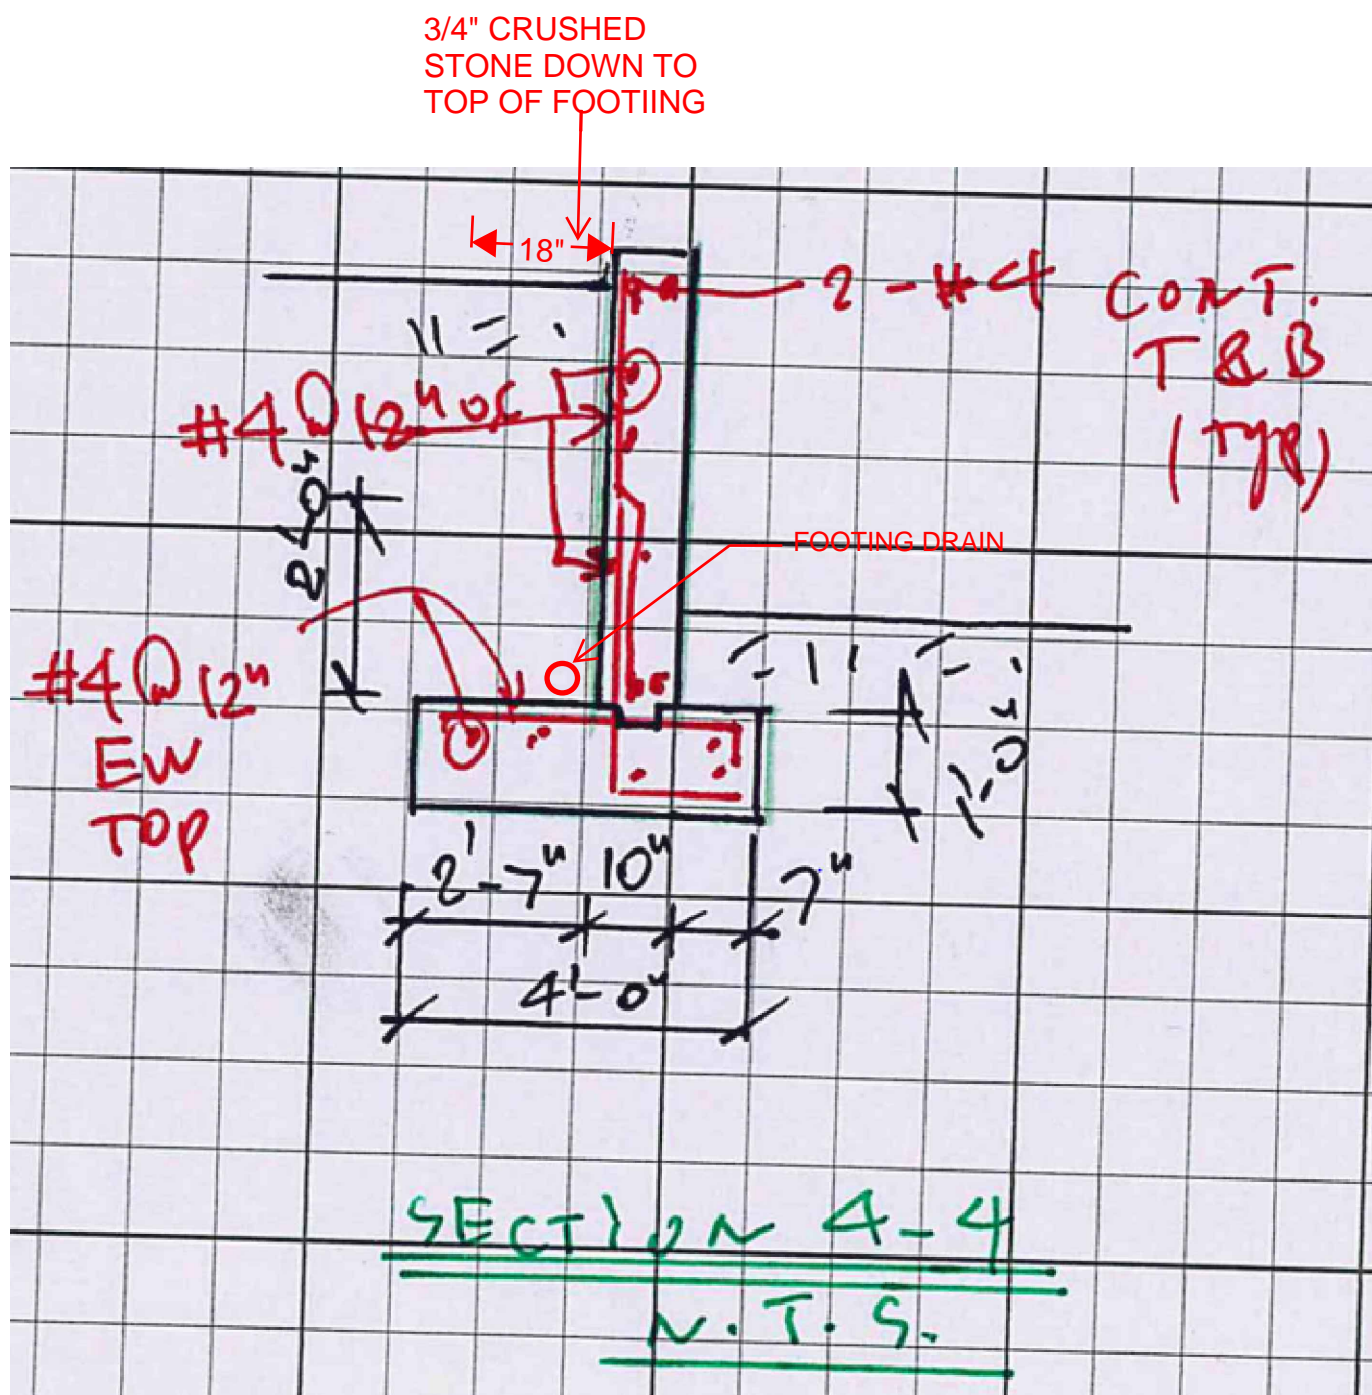 3/4" CRUSHED
STONE DOWN TO
TOP OF FOOTIING
18"
2 - #4 CONT.
T & B
(TYP)
#4 @ 12" OC
2'-0"
FOOTING DRAIN
#4 @ 12"
EW
TOP
1'-0"
2'-7" 10" 7"
4'-0"
SECTION 4-4
N.T.S.